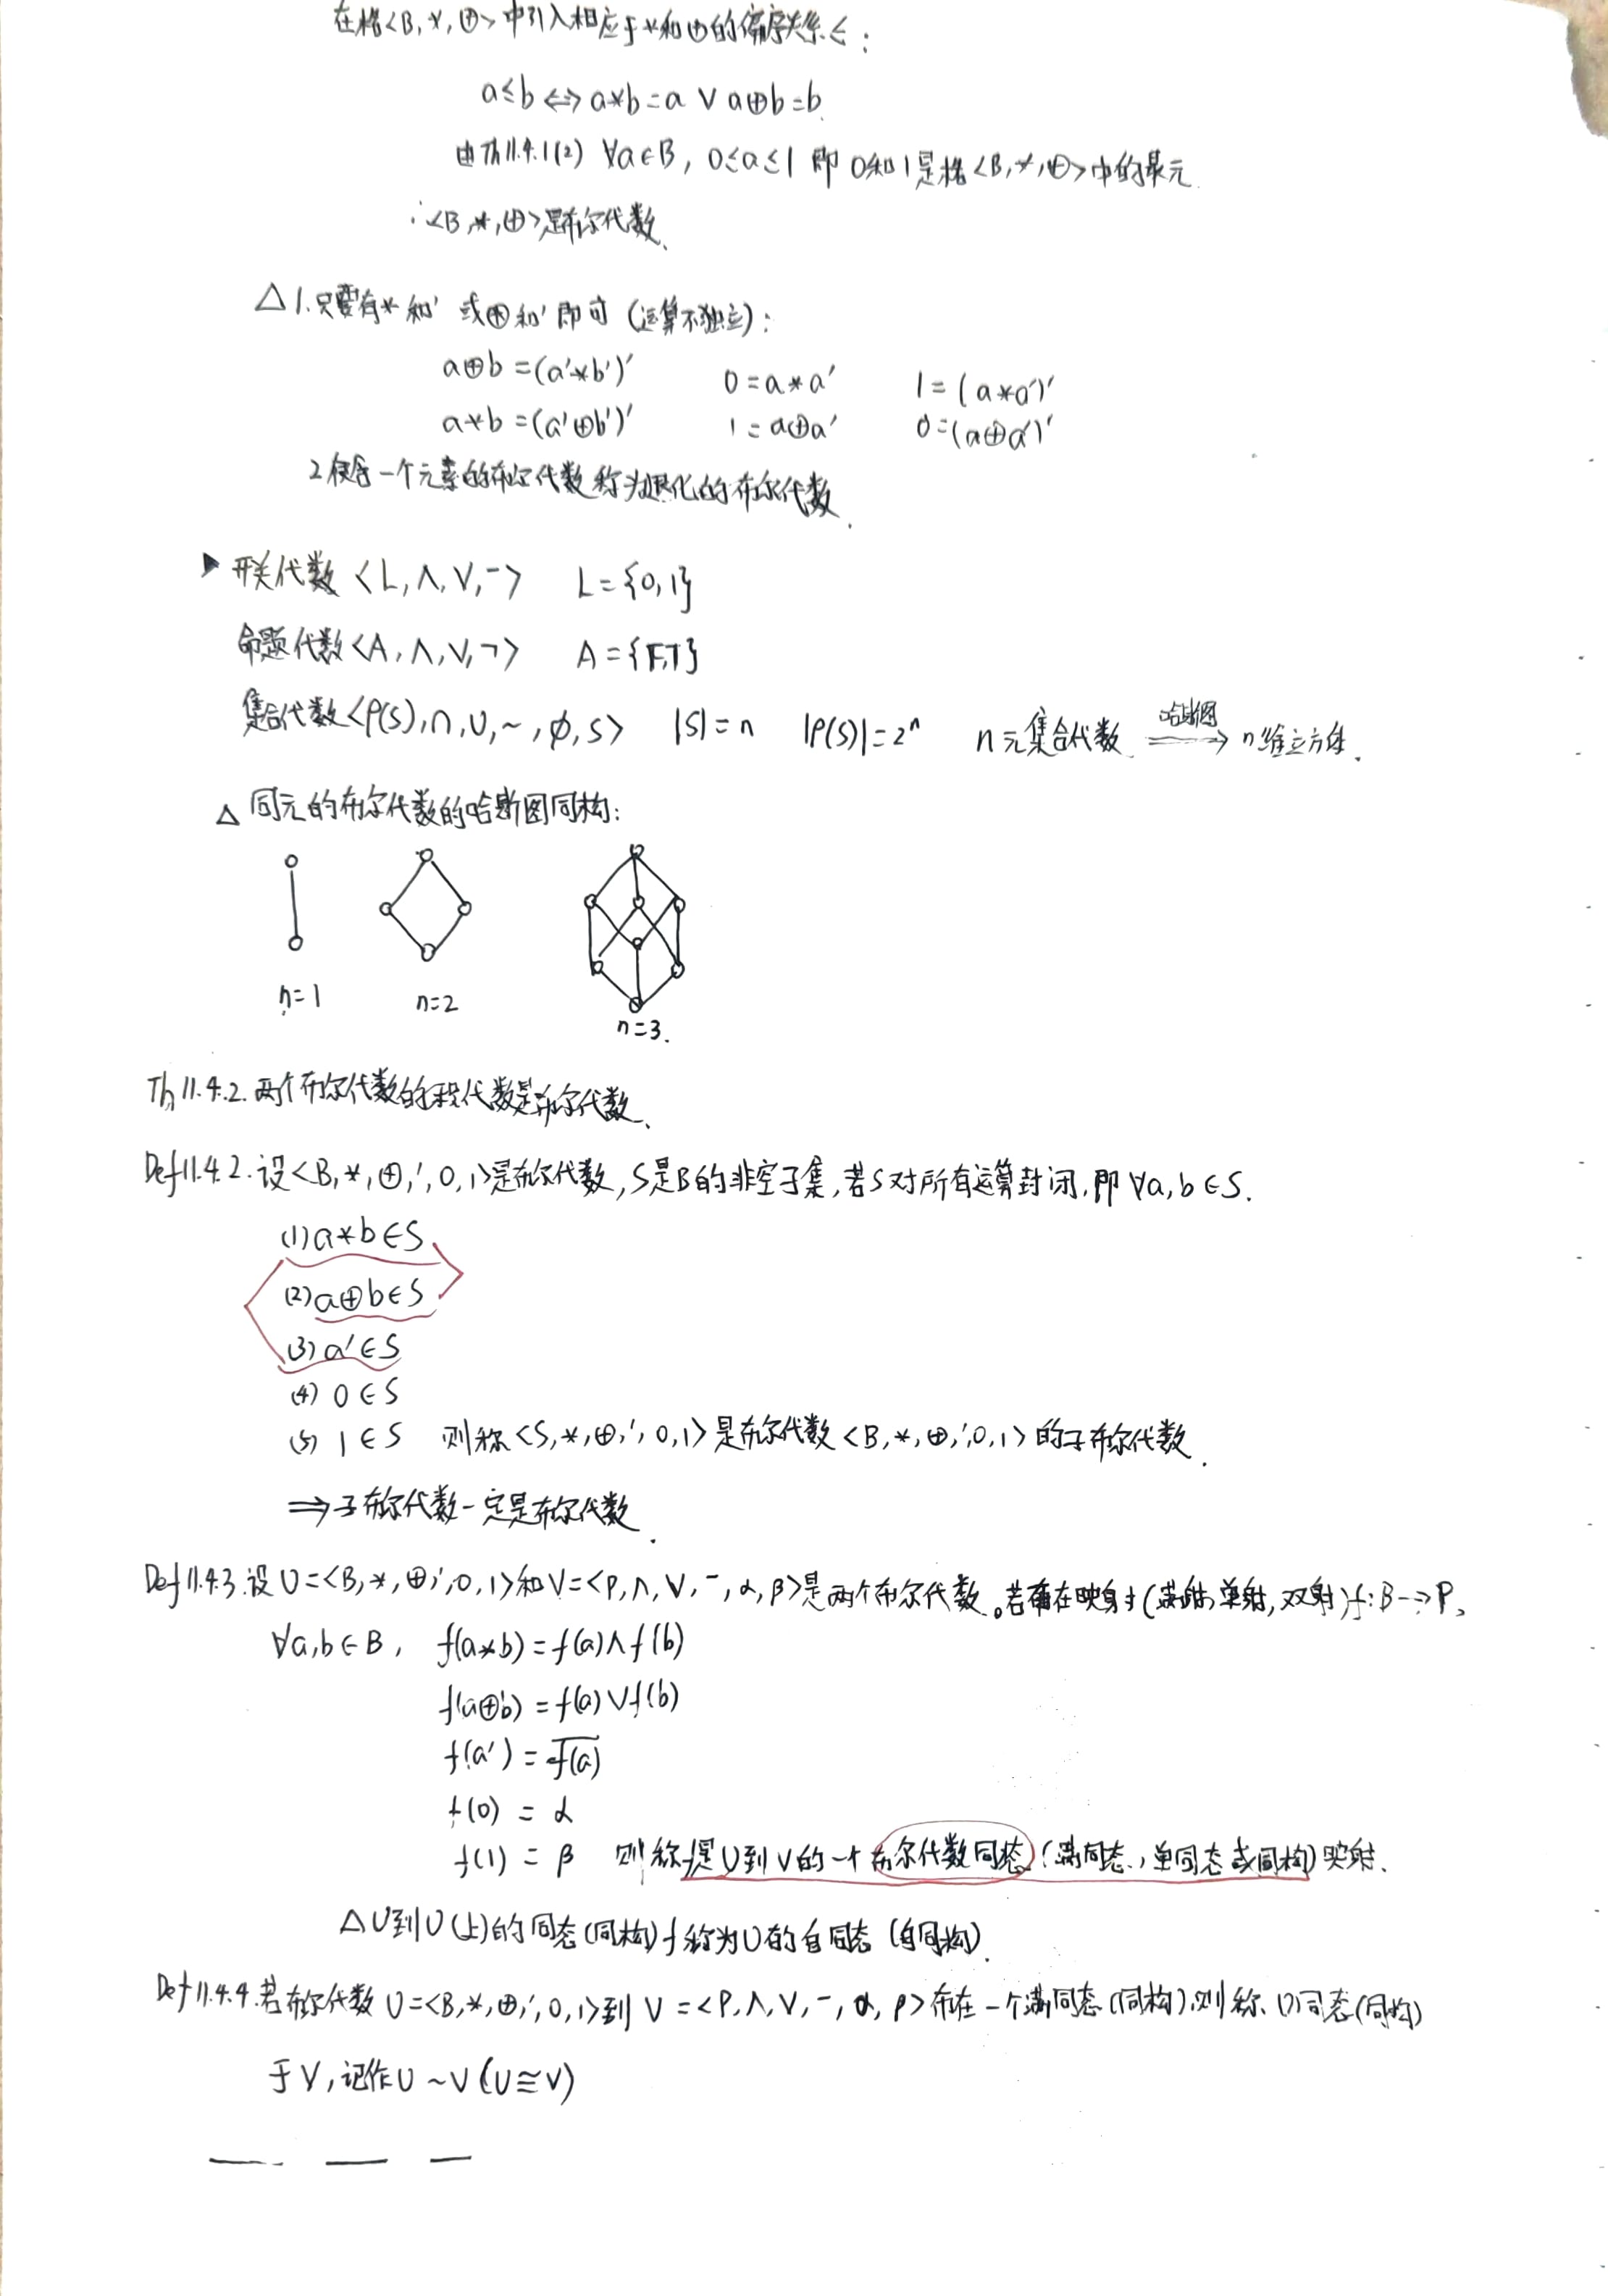 在格<B,*,⊕>中引入相应于*和⊕的偏序关系≤:
a≤b⇔a*b=a∨a⊕b=b.
由Th11.4.1(2) ∀a∈B, 0≤a≤1 即 0和1是格<B,*,⊕>中的界元.
∴<B,*,⊕>是布尔代数.
△1.只要有*和′ 或⊕和′即可(运算不独立):
a⊕b=(a′*b′)′ 0=a*a′ 1=(a*a′)′
a*b=(a′⊕b′)′ 1=a⊕a′ 0=(a⊕a′)′
2.仅含一个元素的布尔代数称为退化的布尔代数.
▶开关代数<L,∧,∨,‾> L={0,1}
命题代数<A,∧,∨,¬> A={F,T}
集合代数<P(S),∩,∪,~,∅,S> |S|=n |P(S)|=2ⁿ n元集合代数 哈斯图⟹ n维立方体.
△同元的布尔代数的哈斯图同构:
n=1 n=2 n=3.
Th11.4.2.两个布尔代数的积代数是布尔代数.
Def11.4.2.设<B,*,⊕,′,0,1>是布尔代数,S是B的非空子集,若S对所有运算封闭,即∀a,b∈S.
(1)a*b∈S
(2)a⊕b∈S
(3)a′∈S
(4) 0∈S
(5) 1∈S 则称<S,*,⊕,′,0,1>是布尔代数<B,*,⊕,′,0,1>的子布尔代数.
⟹子布尔代数一定是布尔代数.
Def11.4.3.设U=<B,*,⊕,′,0,1>和V=<P,∧,∨,‾,α,β>是两个布尔代数。若存在映射(满射,单射,双射)f:B→P,
∀a,b∈B, f(a*b)=f(a)∧f(b)
f(a⊕b)=f(a)∨f(b)
f(a′)=‾f(a)‾
f(0)=α
f(1)=β 则称f是U到V的一个布尔代数同态(满同态,单同态或同构)映射.
△U到U(上)的同态(同构)f称为U的自同态(自同构).
Def11.4.4.若布尔代数U=<B,*,⊕,′,0,1>到V=<P,∧,∨,‾,α,β>存在一个满同态(同构),则称U同态(同构)
于V,记作U~V(U≅V)